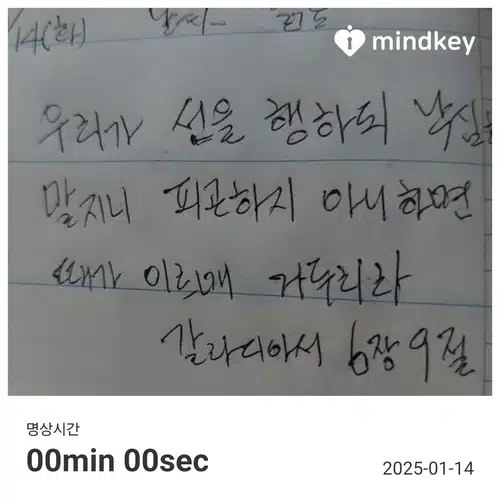 mindkey
14(화) 날씨-
우리가 선을 행하되 낙심
말지니 피곤하지 아니하면
때가 이르매 거두리라
갈라디아서 6장 9절
명상시간
00min 00sec
2025-01-14